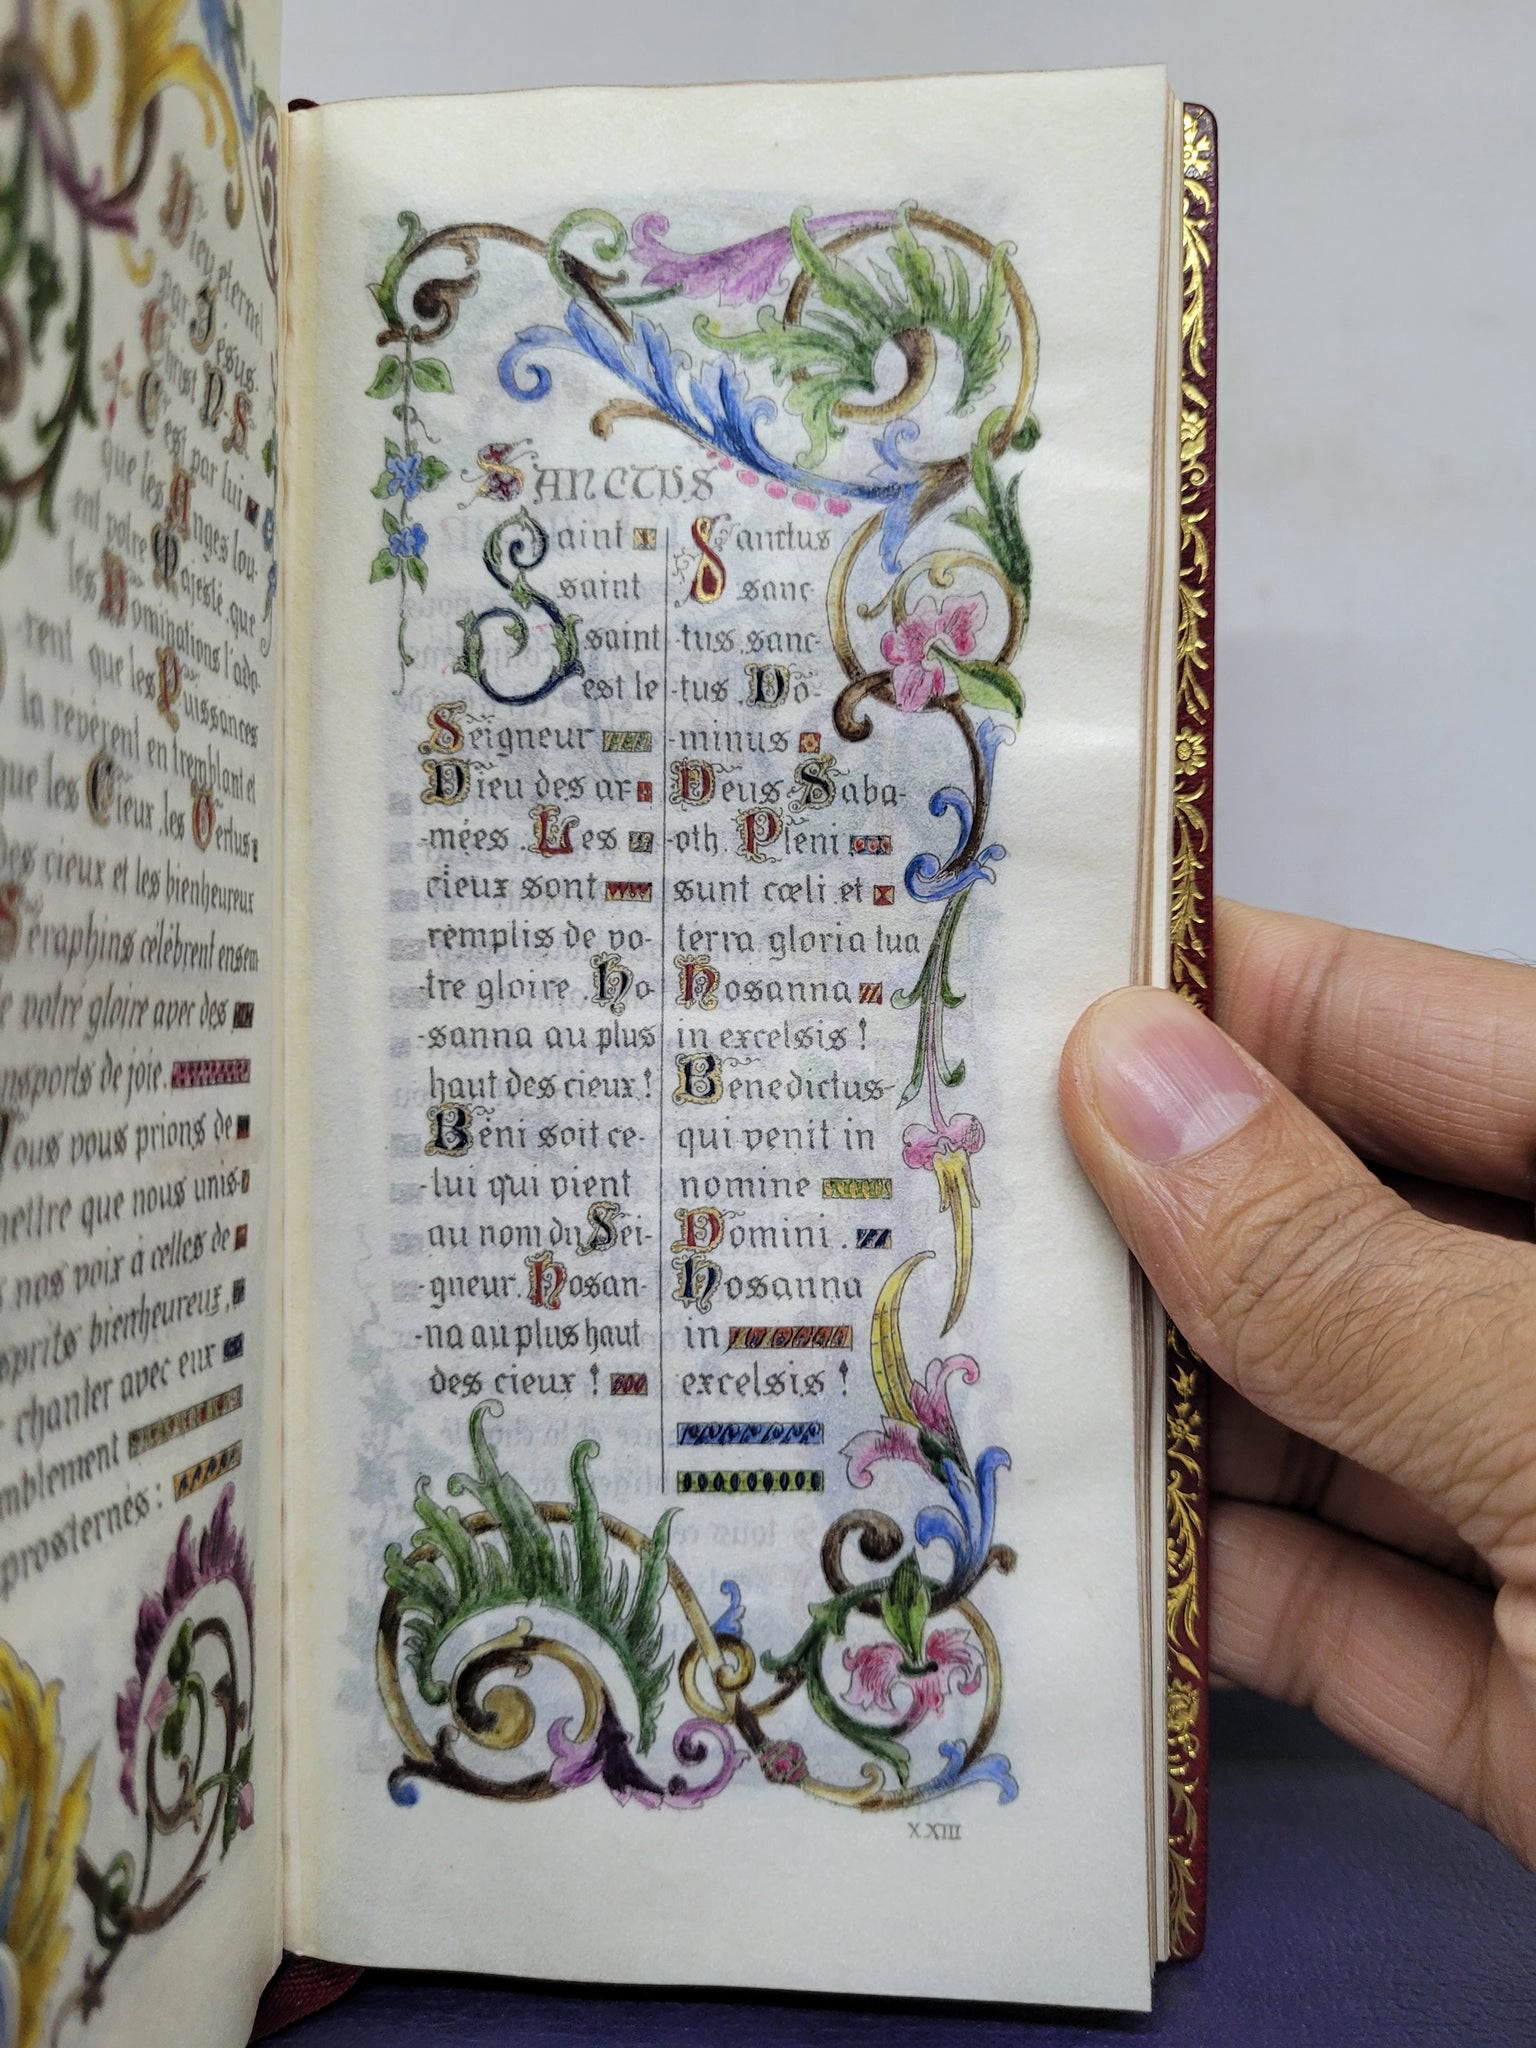 Dieu éternel
par Jésus-
Christ N. S.
C'est par lui
que les Anges lou-
-ent votre Majesté, que
les Dominations l'ado-
-rent que les Puissances
la révèrent en tremblant et
que les Cieux, les Vertus
des cieux et les bienheureux
Séraphins célèbrent ensem
de votre gloire avec des
transports de joie.
Nous vous prions de
mettre que nous unis-
nos voix à celles de
esprits bienheureux,
chanter avec eux
prosternés :
SANCTUS
Saint
saint
saint
est le
Seigneur
Dieu des ar-
-mées. Les
cieux sont
remplis de vo-
-tre gloire. Ho-
-sanna au plus
haut des cieux !
Béni soit ce-
-lui qui vient
au nom du Sei-
-gneur. Hosan-
-na au plus haut
des cieux !
Sanctus
sanc-
-tus, sanc-
-tus. Do-
-minus
Deus Saba-
-oth. Pleni
sunt cœli et
terra gloria tua
Hosanna
in excelsis !
Benedictus
qui venit in
nomine
Domini.
Hosanna
in
excelsis !
XXIII